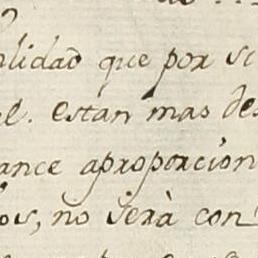 lidad que por si
el. estan mas des
ance aproporcion
ios, no serà con